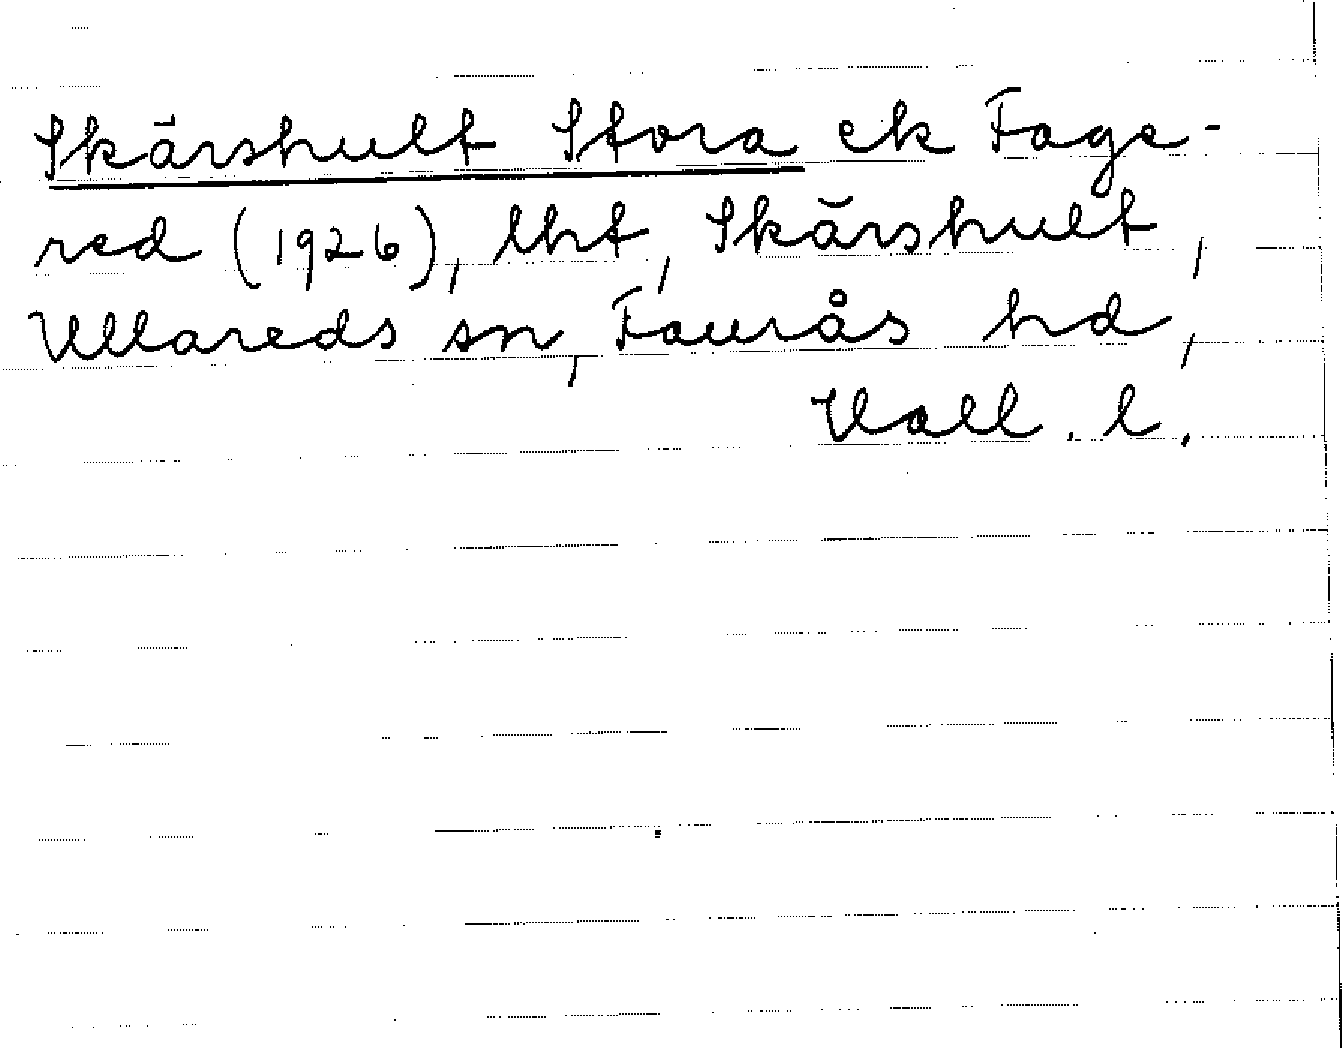 Skärshult Stora ek Fage-
red (1926), lht, Skärshult,
Ullareds sn, Faurås hd,
Hall. l.